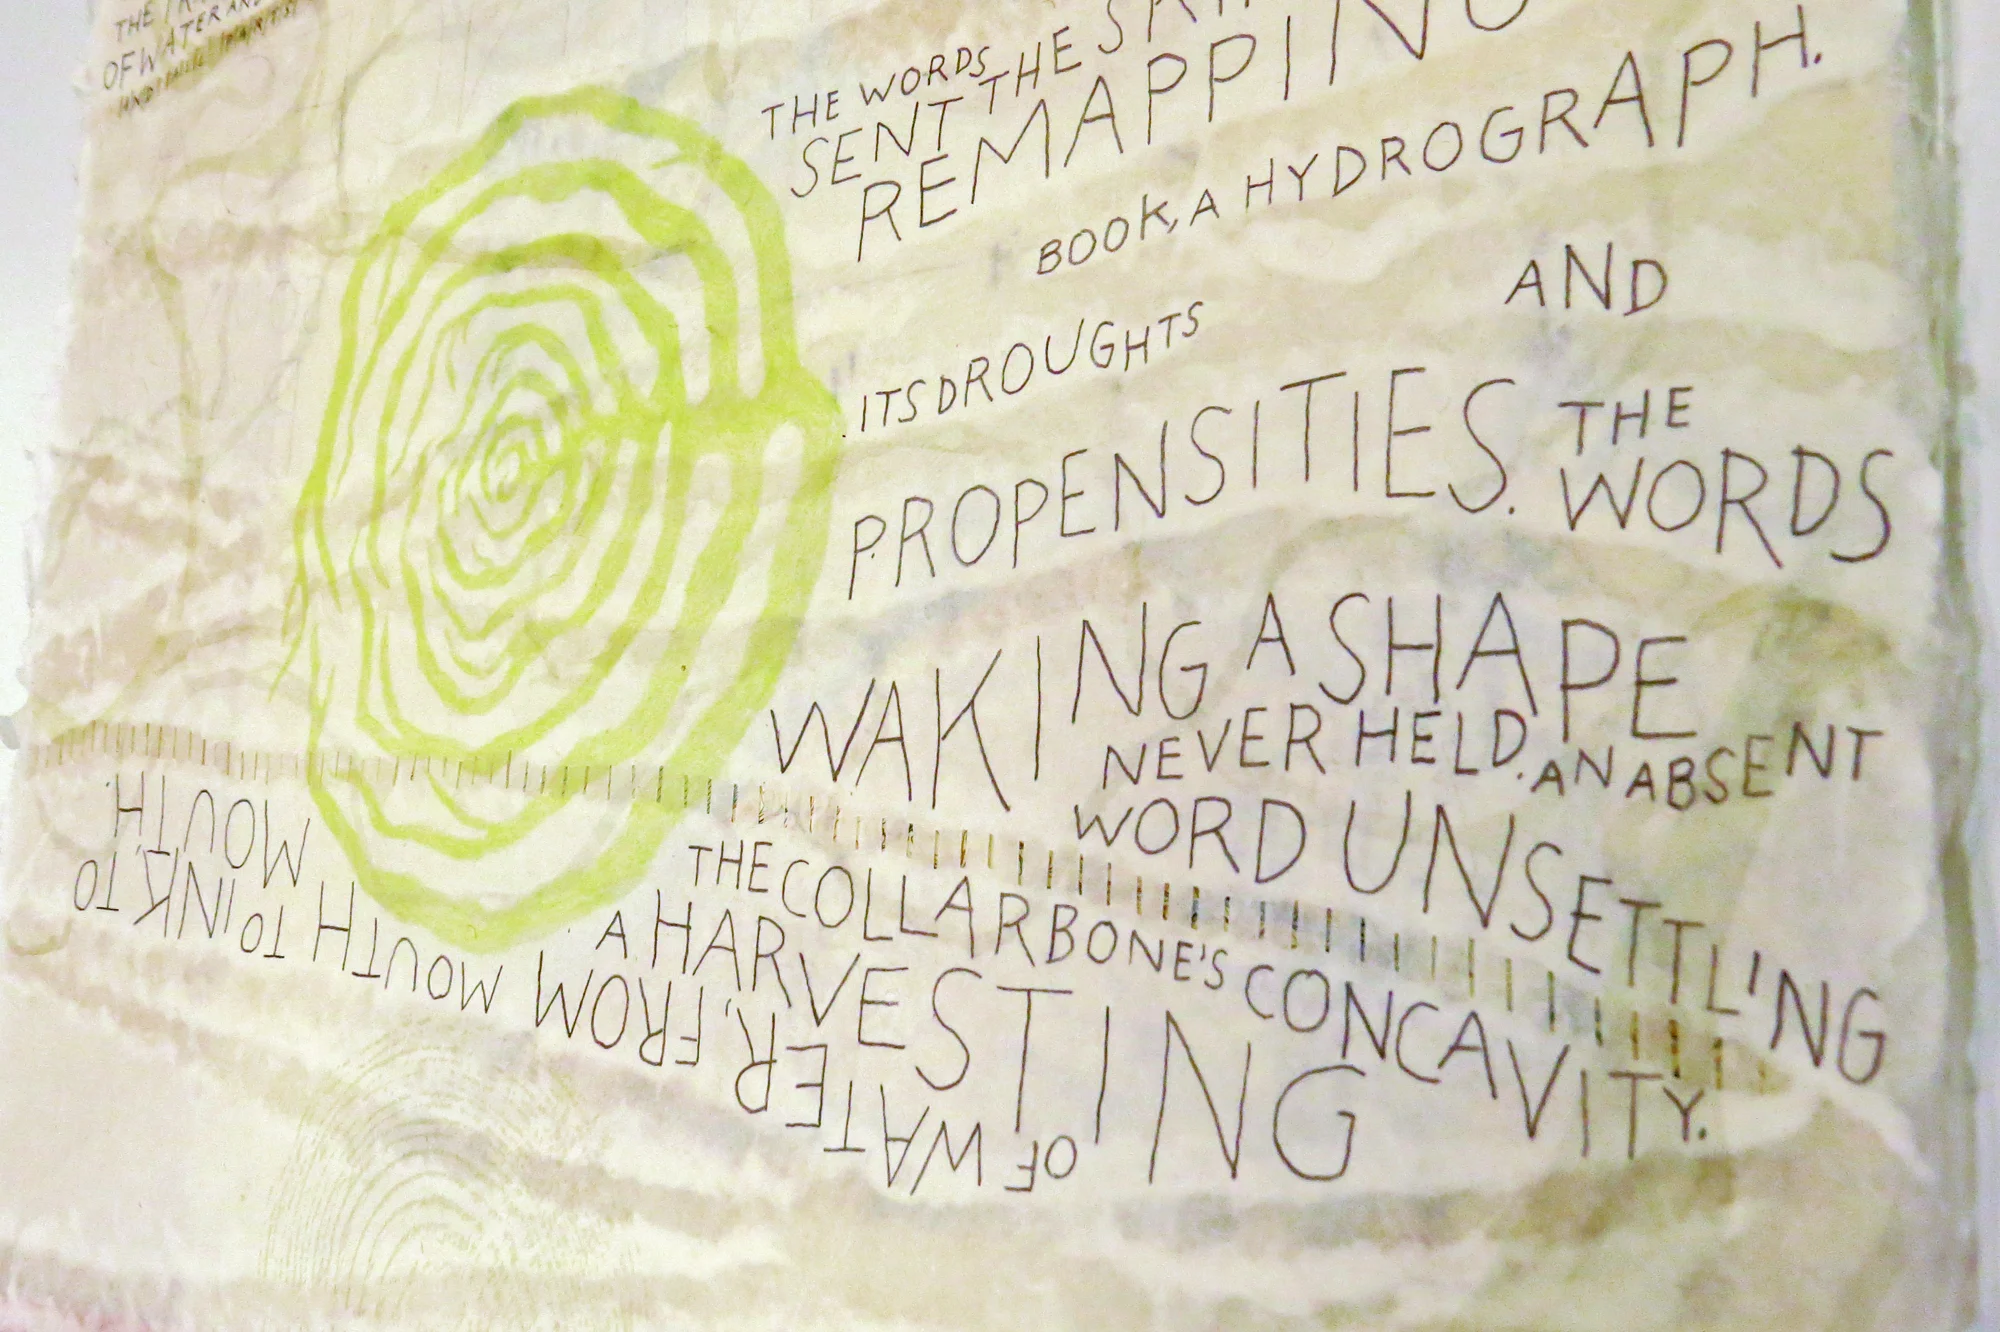 THE
OF WATER AND
THE WORDS
SENT THE
REMAPPING
BOOK, A HYDROGRAPH.
ITS DROUGHTS AND
PROPENSITIES. THE
WORDS
WAKING A SHAPE
NEVER HELD. AN ABSENT
WORD UNSETTLING
THE COLLARBONE'S CONCAVITY.
A HARVESTING
OF WATER, FROM MOUTH TO INK, TO
MOUTH.